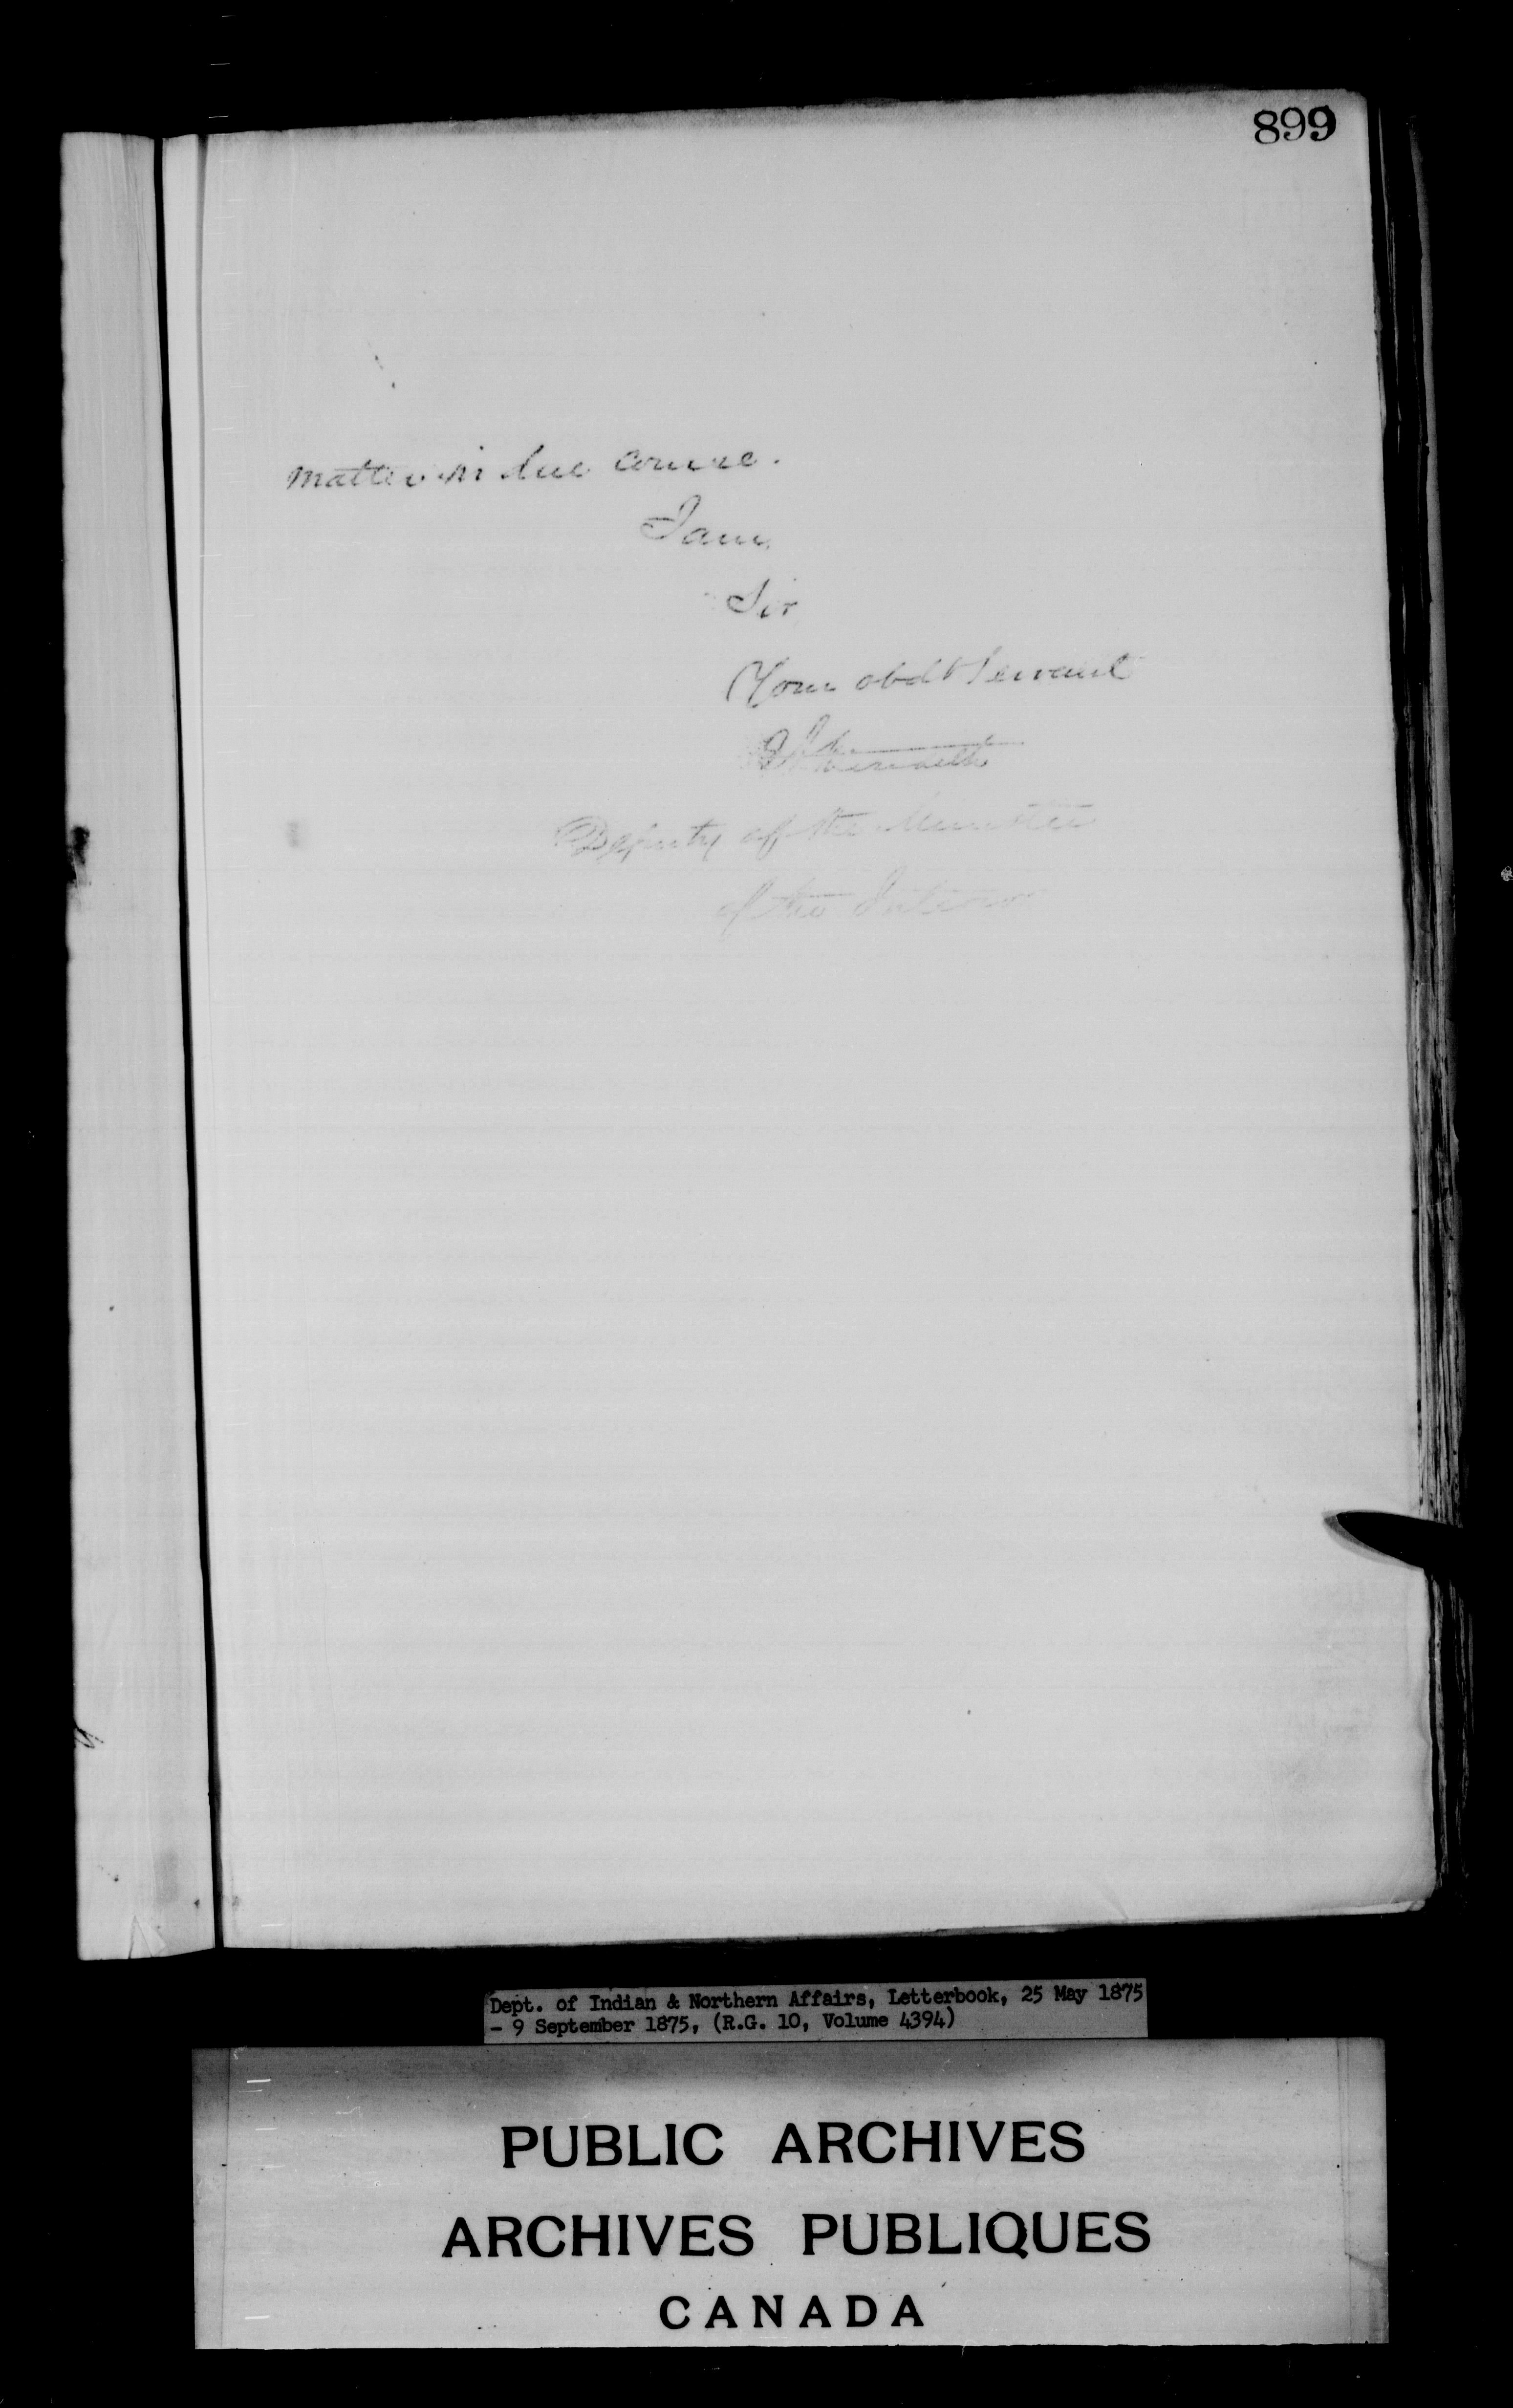 899
matter in due course.
I am
Sir
Your obdt Servant
E A Meredith
Deputy of the Minister
of the Interior
Dept. of Indian & Northern Affairs, Letterbook, 25 May 1875
- 9 September 1875, (R.G. 10, Volume 4394)
PUBLIC ARCHIVES
ARCHIVES PUBLIQUES
CANADA